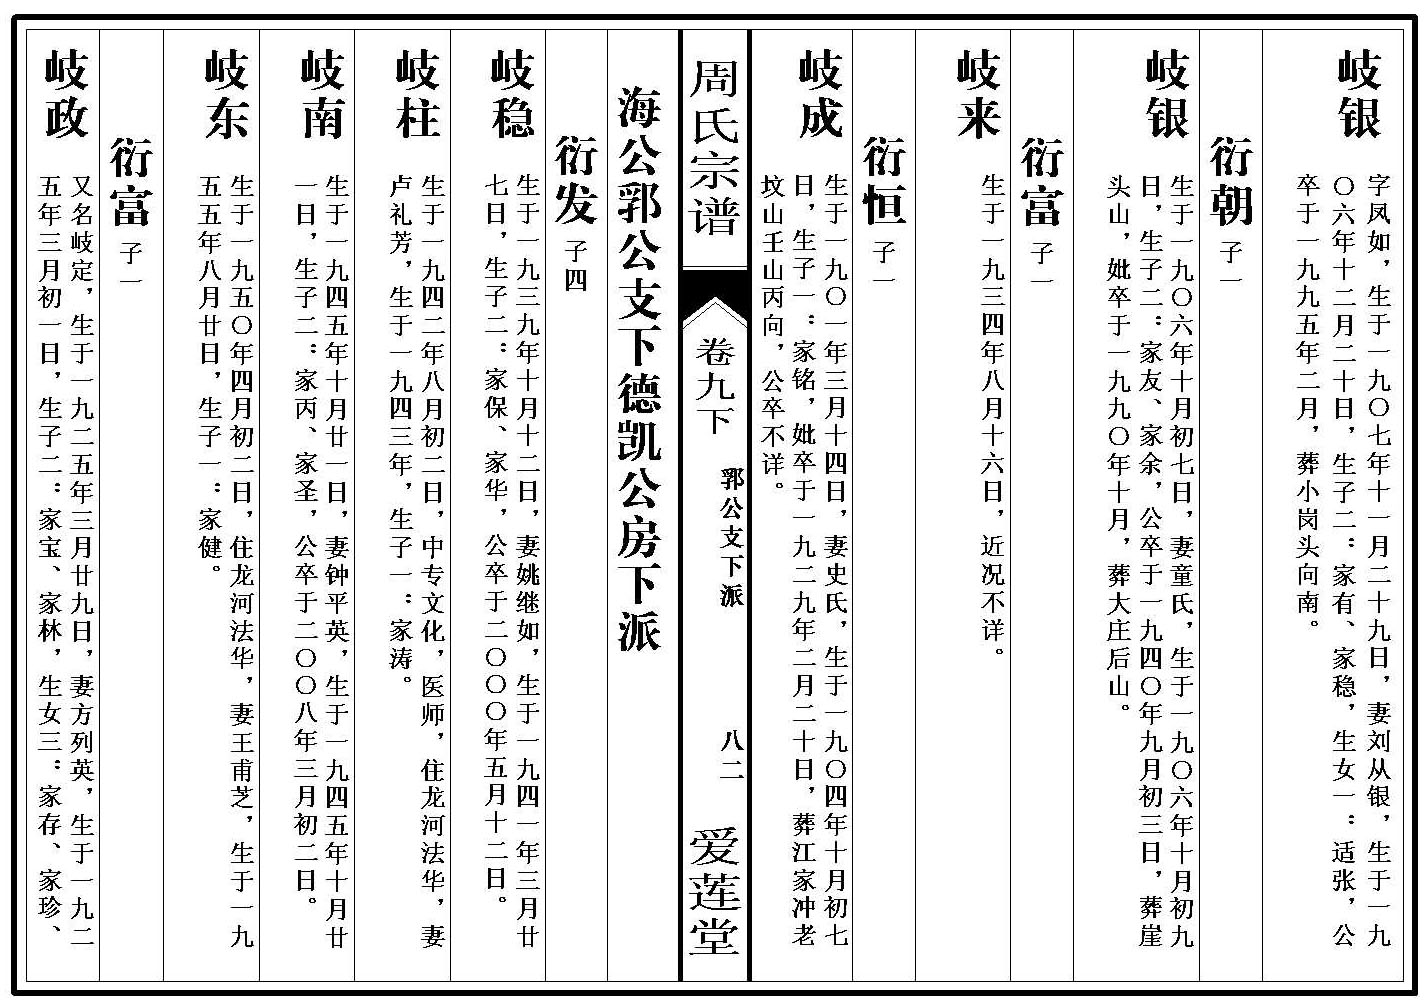 岐银
字凤如，生于一九〇七年十一月二十九日，妻刘从银，生于一九
〇六年十二月二十日，生子二：家有、家稳，生女一：适张，公
卒于一九九五年二月，葬小岗头向南。
衍朝 子一
岐银
生于一九〇六年十月初七日，妻童氏，生于一九〇六年十月初九
日，生子二：家友、家余，公卒于一九四〇年九月初三日，葬崖
头山，妣卒于一九九〇年十月，葬大庄后山。
衍富 子一
岐来
生于一九三四年八月十六日，近况不详。
衍恒 子一
岐成
生于一九〇一年三月十四日，妻史氏，生于一九〇四年十月初七
日，生子一：家铭，妣卒于一九二九年二月二十日，葬江家冲老
坟山壬山丙向，公卒不详。
周氏宗谱
卷九下
郭公支下派
八二
爱莲堂
海公郭公支下德凯公房下派
衍发 子四
岐稳
生于一九三九年十月十二日，妻姚继如，生于一九四一年三月廿
七日，生子二：家保、家华，公卒于二〇〇〇年五月十二日。
岐柱
生于一九四二年八月初二日，中专文化，医师，住龙河法华，妻
卢礼芳，生于一九四三年，生子一：家涛。
岐南
生于一九四五年十月廿一日，妻钟平英，生于一九四五年十月廿
一日，生子二：家丙、家圣，公卒于二〇〇八年三月初二日。
岐东
生于一九五〇年四月初二日，住龙河法华，妻王甫芝，生于一九
五五年八月廿日，生子一：家健。
衍富 子一
岐政
又名岐定，生于一九二五年三月廿九日，妻方列英，生于一九二
五年三月初一日，生子二：家宝、家林，生女三：家存、家珍、